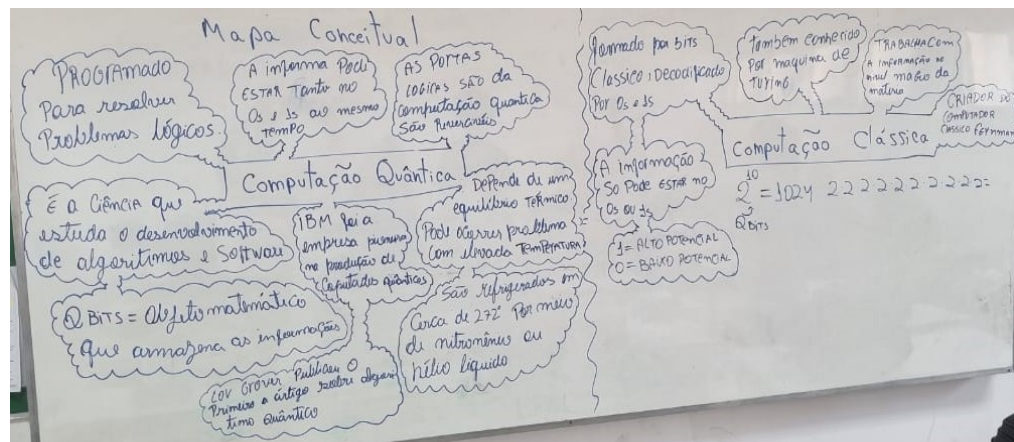 Mapa Conceitual
PROGRAMADO
Para resolver
Problemas lógicos.
A informa Pode
ESTAR Tanto no
0s e 1s ao mesmo
TEMPO
AS PORTAS
LOGICAS SÃO da
Computação quantica
São Reversíveis
Computação Quântica
É a Ciência que
estuda o desenvolvimento
de algoritimos e Software
IBM foi a
empresa pioneira
na produção de
Coputades quânticos
Depende de um
equilíbrio TéRmico
Pode ocorrer problema
com elevada TEMPERATURA
Q BiTS = Objeto matemático
que armazena as informações
São refrigerados em
Cerca de 272° Por meio
de
ou
hélio líquido
LOV GROVER Publicou O
Primeiro a artigo sobre algori
timo Quântico
formado por biTS
Classico: Decodificado
Por 0s e 1s
Também conhecido
Por maquina de
TURING
TRABALHA Com
A informação no
nivel macro da
matéria
CRIADOR DO
COMPUTADOR
CLASSICO FEYNMAN
Computação Clássica
A informação
So Pode ESTAR no
0s ou 1s
1 = ALTO POTENCIAL
0 = BAIXO POTENCIAL
2¹⁰ = 1024 2 2 2 2 2 2 2 2 2 2=
Q BiTS